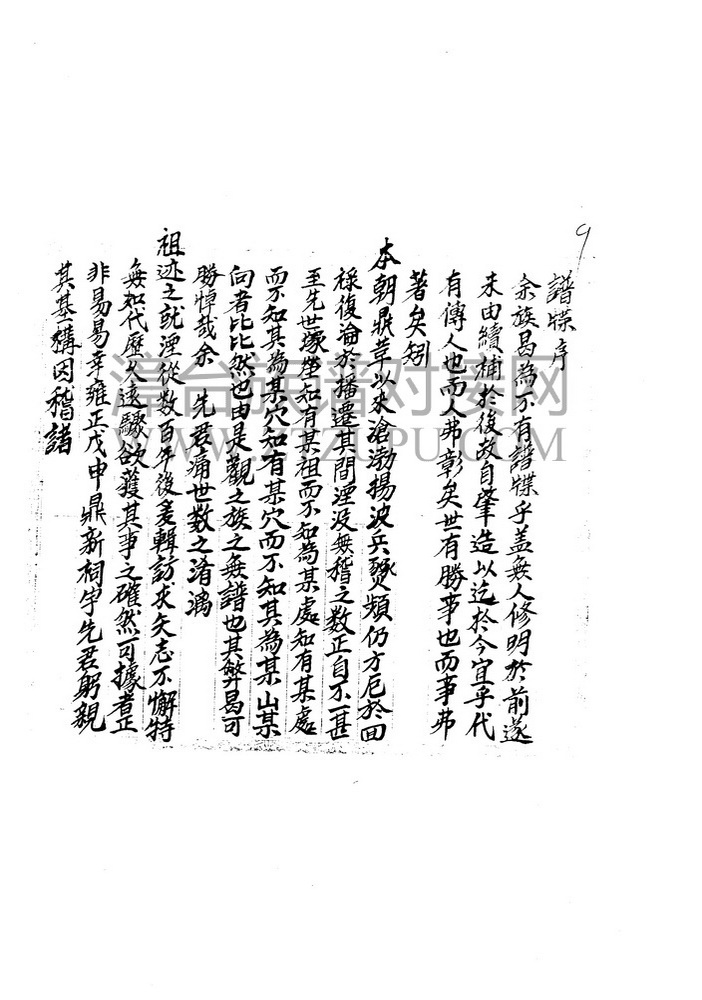 9
譜牒序
余族曷為不有譜牒乎蓋無人修明於前遂
未由續補於後故自肇造以迄於今宜乎代
有傳人也而人弗彰矣世有勝事也而事弗
著矣矧
本朝鼎革以來滄渤揚波兵燹頻仍方厄於回
祿復淪於播遷其間湮没無稽之数正自不一甚
至先世塚塋知有某祖而不知為某處知有某處
而不知其為某穴知有某穴而不知其為某山某
向者比比然也由是觀之族之無譜也其弊曷可
勝悼哉余 先君痛世数之淆溷
祖迹之就湮從数百年後爰輯訪求矢志不懈特
無如代歷久遠驟欲獲其事之確然可據者正
非易易幸雍正戊申鼎新祠宇先君躬親
其基構因稽諸
漳台族谱对接网
WWW.ZTZUPU.COM